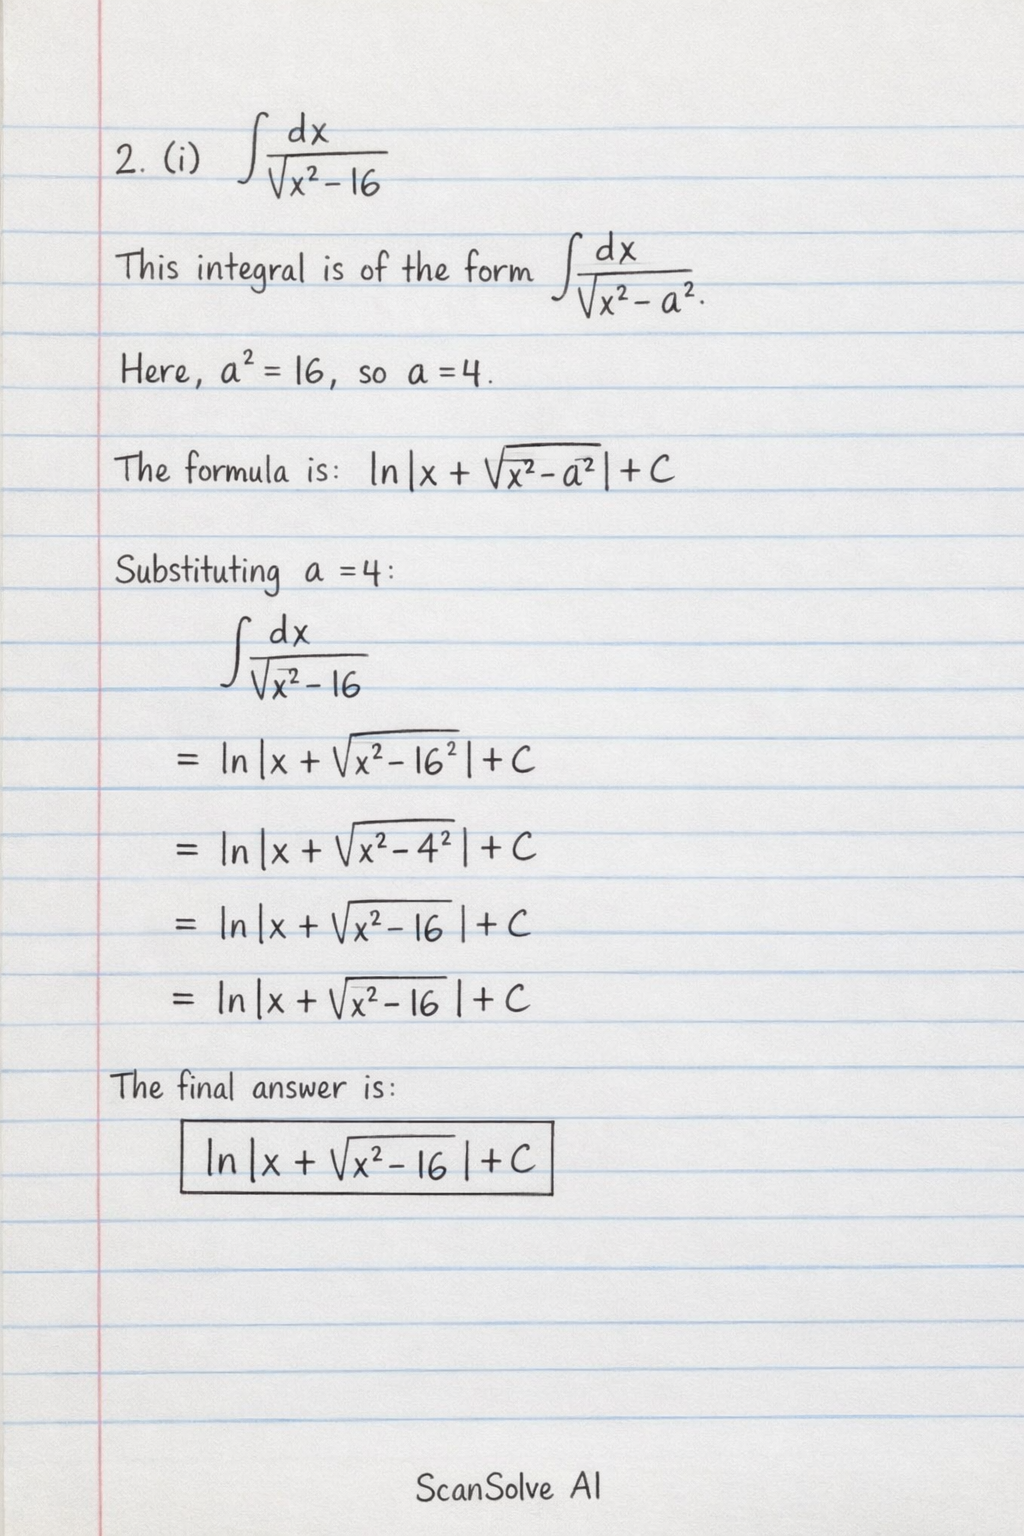 2. (i) ∫ dx / √x² – 16
This integral is of the form ∫ dx / √x² – a².
Here, a² = 16, so a = 4.
The formula is: ln|x + √x² – a²| + C
Substituting a = 4:
∫ dx / √x² – 16
= ln|x + √x² – 16²| + C
= ln|x + √x² – 4²| + C
= ln|x + √x² – 16| + C
= ln|x + √x² – 16| + C
The final answer is:
ln|x + √x² – 16| + C
ScanSolve AI